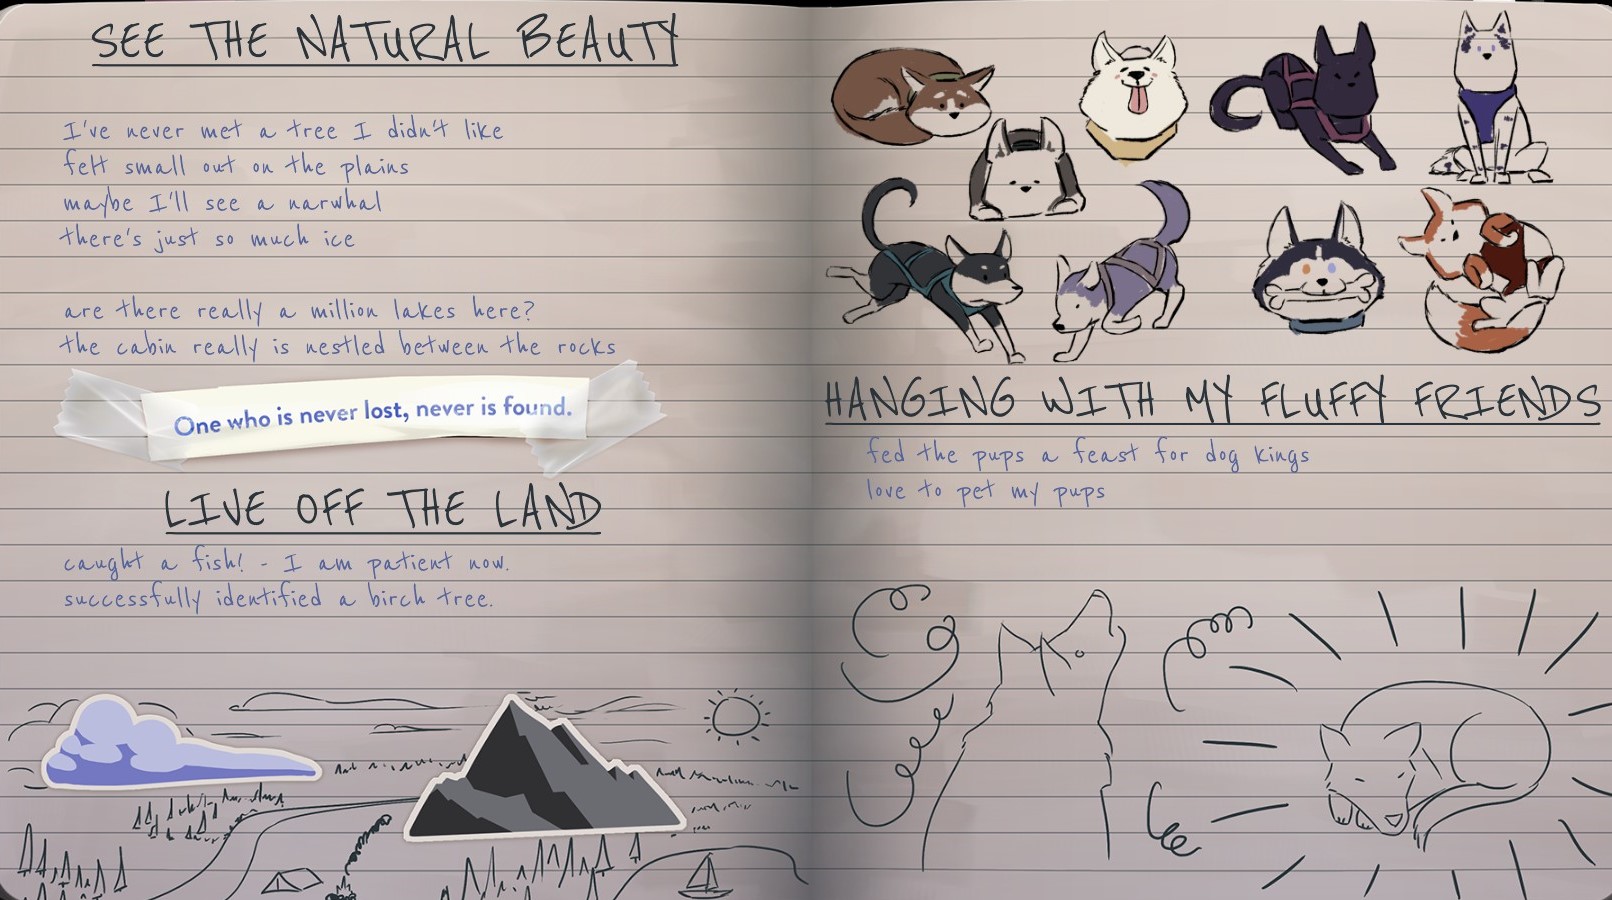 SEE THE NATURAL BEAUTY
I've never met a tree I didn't like
felt small out on the plains
maybe I'll see a narwhal
there's just so much ice
are there really a million lakes here?
the cabin really is nestled between the rocks
One who is never lost, never is found.
LIVE OFF THE LAND
caught a fish! - I am patient now.
successfully identified a birch tree.
HANGING WITH MY FLUFFY FRIENDS
fed the pups a feast for dog kings
love to pet my pups